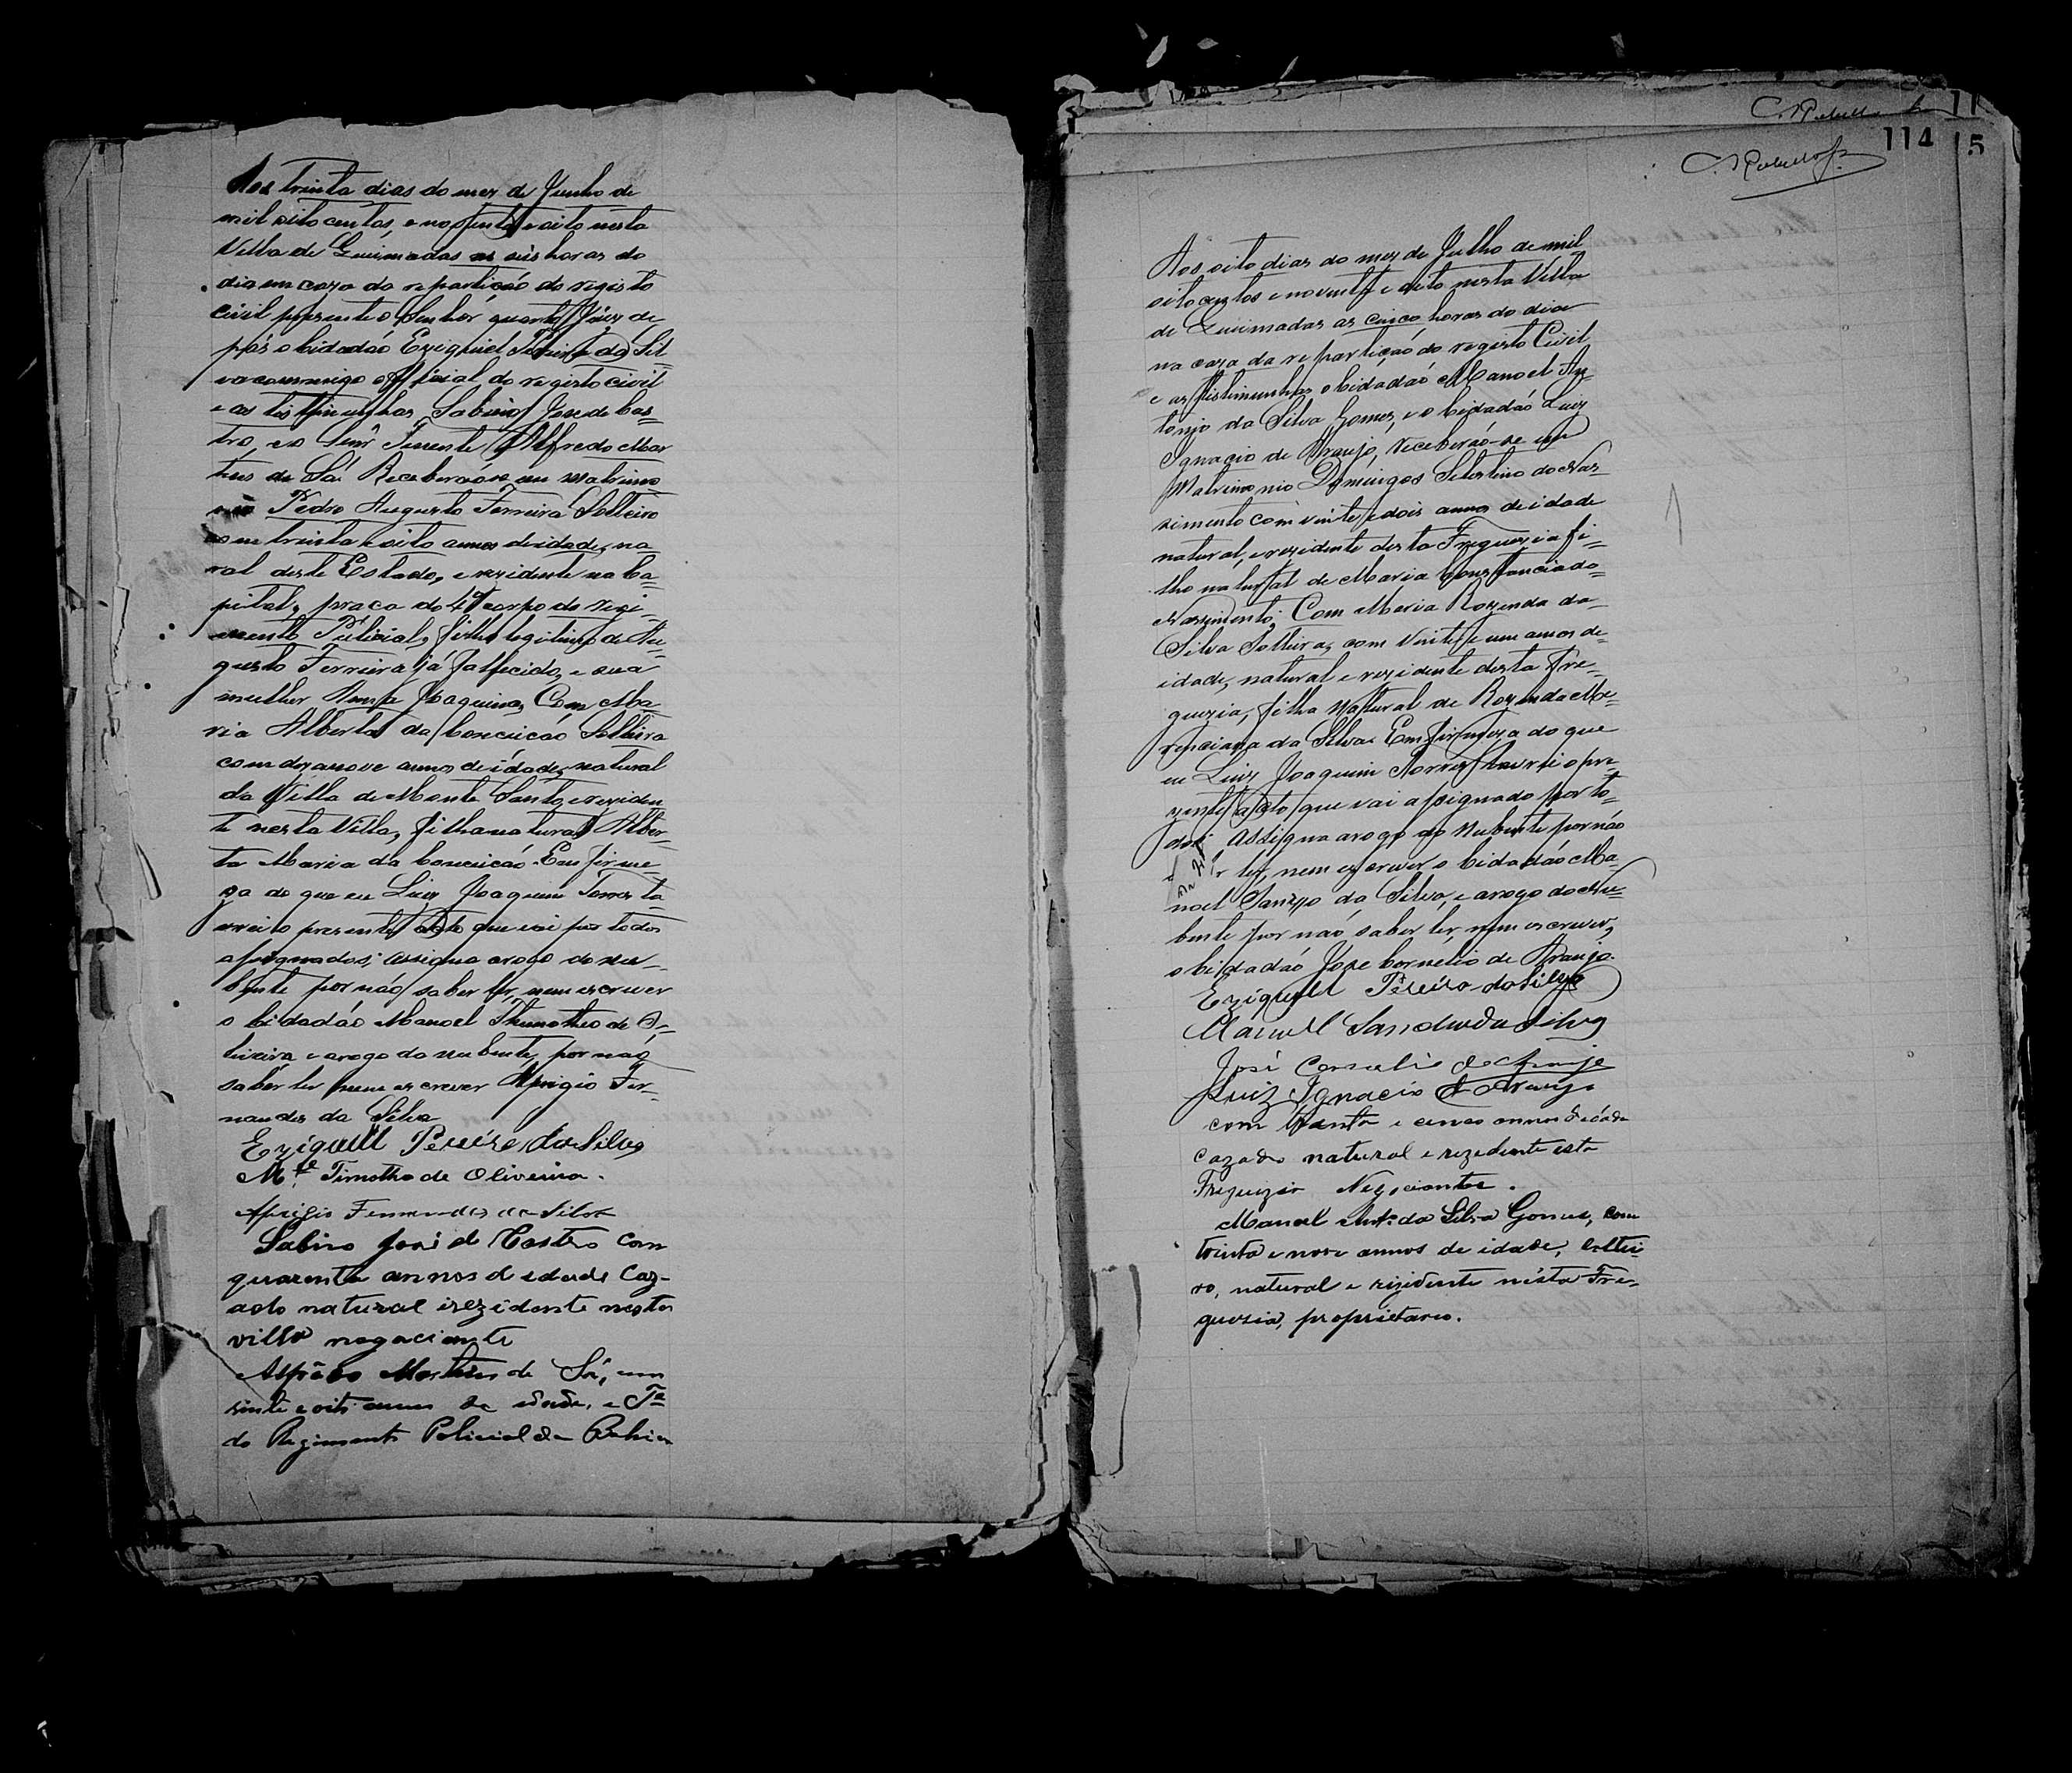 Aos trinta dias do mez de Junho de
mil oito centos, e noventa e oito nesta
Villa de Queimadas as seis horas do
dia em caza da repartição do registo
civil presente o Senhor quarto Juiz de
pás o Cidadão Eziquiel Pereira da Sil-
va commigo official do registo civil
e as testimunhas Sabino José de Cas-
tro, e o Senr Tenente Alfredo Mar
tins de Sá. Receberão-se em matrimo
nio Pedro Augusto Ferreira Solteiro
com trinta e oito annos de idade, na-
ral deste Estado, e rezidente na Ca-
pital, praca do 4º corpo do regi-
mento Policial, filho legitimo de Au-
gusto Ferreira já fallecido, e sua
mulher Joaquina, Com Ma
ria Alberta da Conceicão Solteira
com dezanove annos de idade, natural
da Villa de Monte Santo, e reziden
te nesta Villa, filha natural Alber-
ta Maria da Conceicão. Em firme
za do que eu Luiz Joaquim Torres la-
vrei o presente acto que vai por todos
assignados; assigna arogo do nu-
bente por não saber ler, nem escrever
o Cidadão Manoel Thimotheo de O-
liveira e arogo da nubente, por não
saber ler nem escrever Aprigio Fer-
nandes da Silva
Eziquiell Pereira da Silva
Mel Timotho de Oliveira.
Aprigio Fernandes da Silva
Sabino José de Castro com
quarenta annos de edade Caz-
ado natural irezidente nesta
villa negaciante
Alfrêdo Martins de Sá, com
vinte e oito annos de edade, e Te
do Regimento Policial da Bahia
114
Aos oito dias do mez de Julho de mil
oito centos e noventa e oito nesta Villa
de Queimadas as cinco horas do dia
na caza da repartição do registo Civil
e as testimunhas o Cidadão Manoel An-
tonio da Silva Gomes, e o Cidadão Luiz
Ignacio de Araujo, receberão-se em
Matrimonio Domingos Silistino do Nas-
simento com vinte e dois annos de idade
natural, e rezidente desta Freguezia fi-
lho natural de Maria Constancia do
Nassimento; Com Maria Rozenda da
Silva Solteira, com vinte e um annos de
idade, natural e rezidente desta Fre-
guezia, filha natural de Rozenda Me-
renciana da Silva. Em firmeza do que
eu Luiz Joaquim Torres lavrei o pre-
zente acto que vai assignado por to-
dos; Assigna arogo do nubente por não
ler, nem escrever o Cidadão Ma-
noel da Silva, e arogo da Nu-
bente por não saber ler, nem escrever,
o Cidadão José Cornelio de Araujo.
Eziquiell Pereira da Silva
Manoel da Silva
José Cornelio de Araujo
Luiz Ignacio de Araujo
com trinta e cinco annos de idade
cazado natural e rezedente esta
Freguizia Negociante.
Manoel Anto da Silva Gomes, com
trinta e nove annos de idade, soltei
ro, natural e rizidente nésta Fre-
guesia, proprietario.